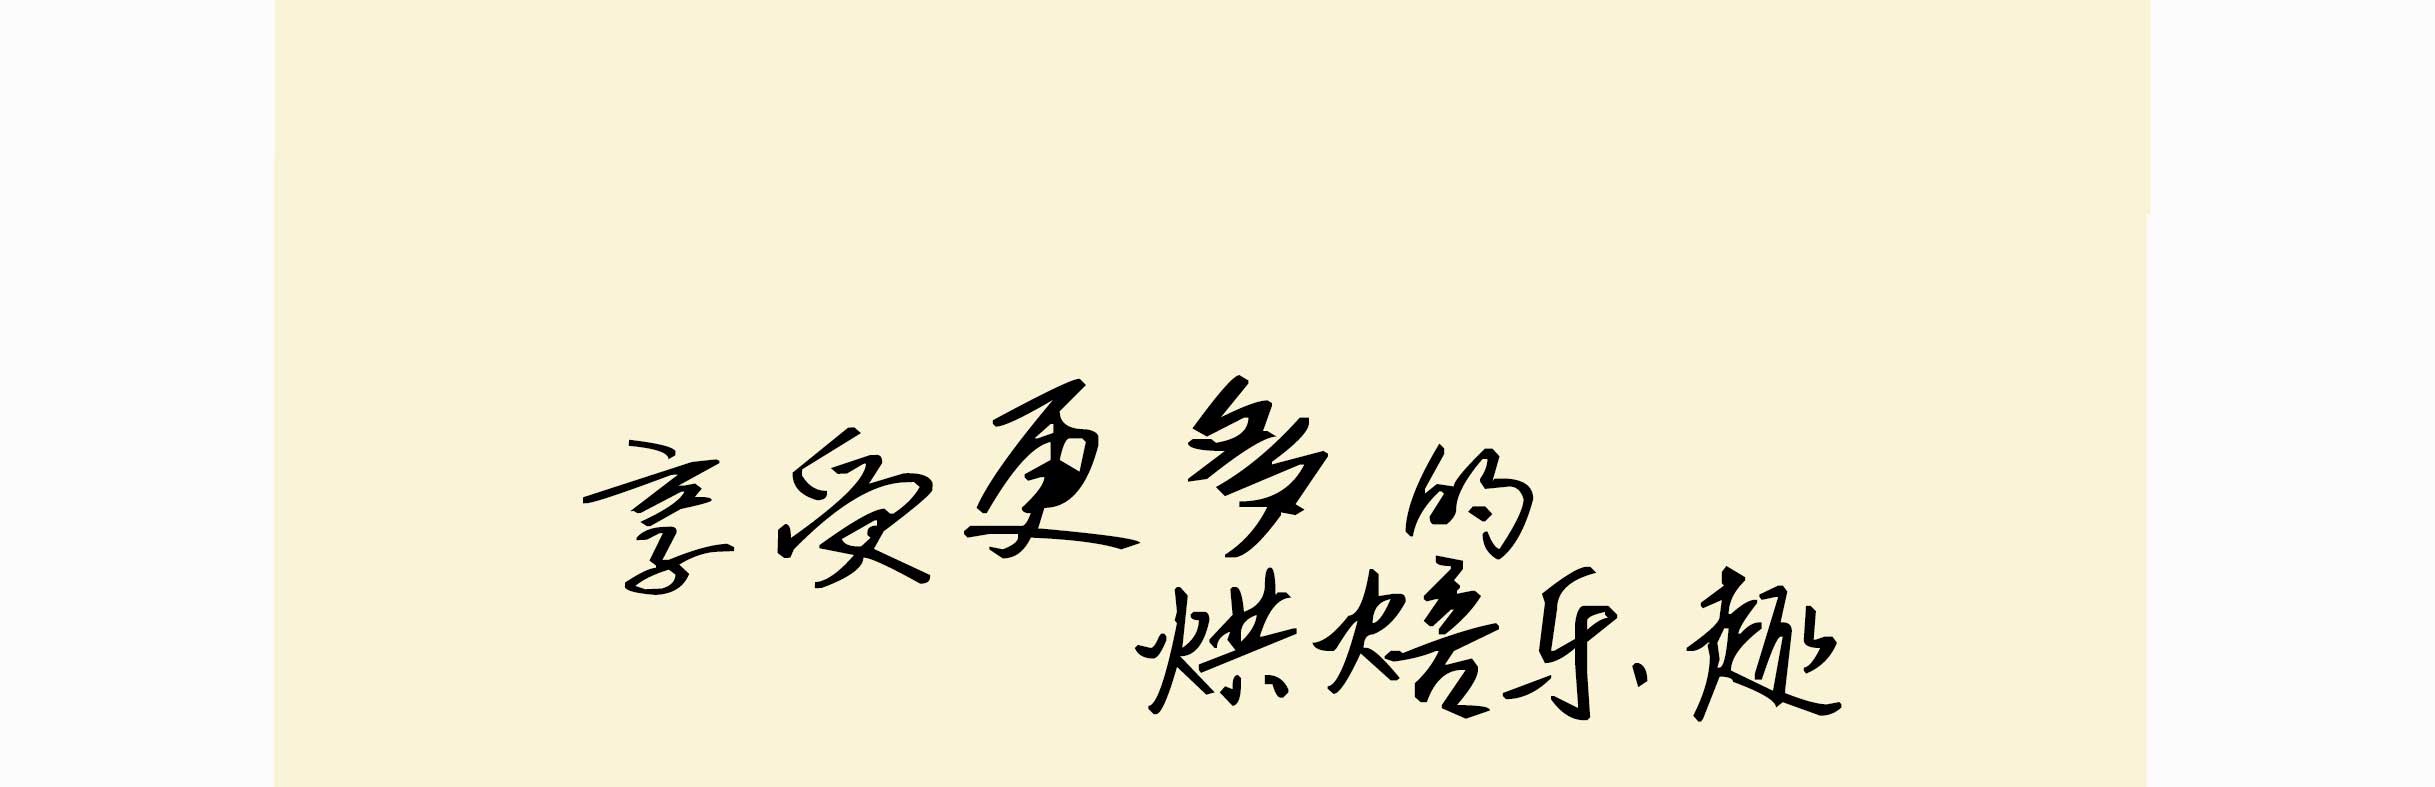 享受更多的
烘焙乐趣